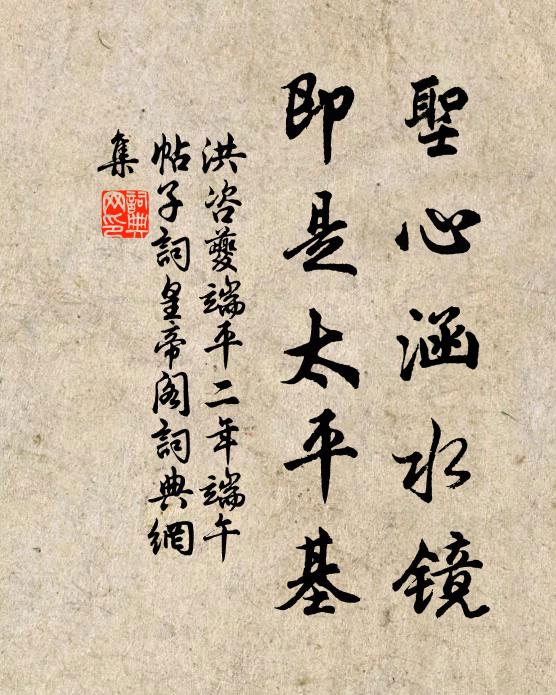 聖心涵水鏡
即是太平基
洪咨夔端平二年端午
帖子詞皇帝閣詞典網
集
詞典
网印